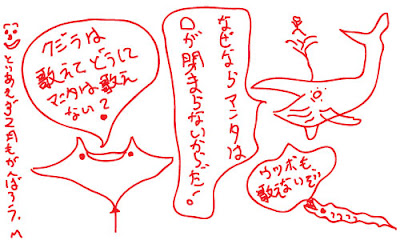 クジラは
歌えてどうして
マンタは歌え
ない?
なぜならマンタは
口が閉まらないからだ!
ウツボも
歌えないぞ
とりあえず2月もがんばろう。